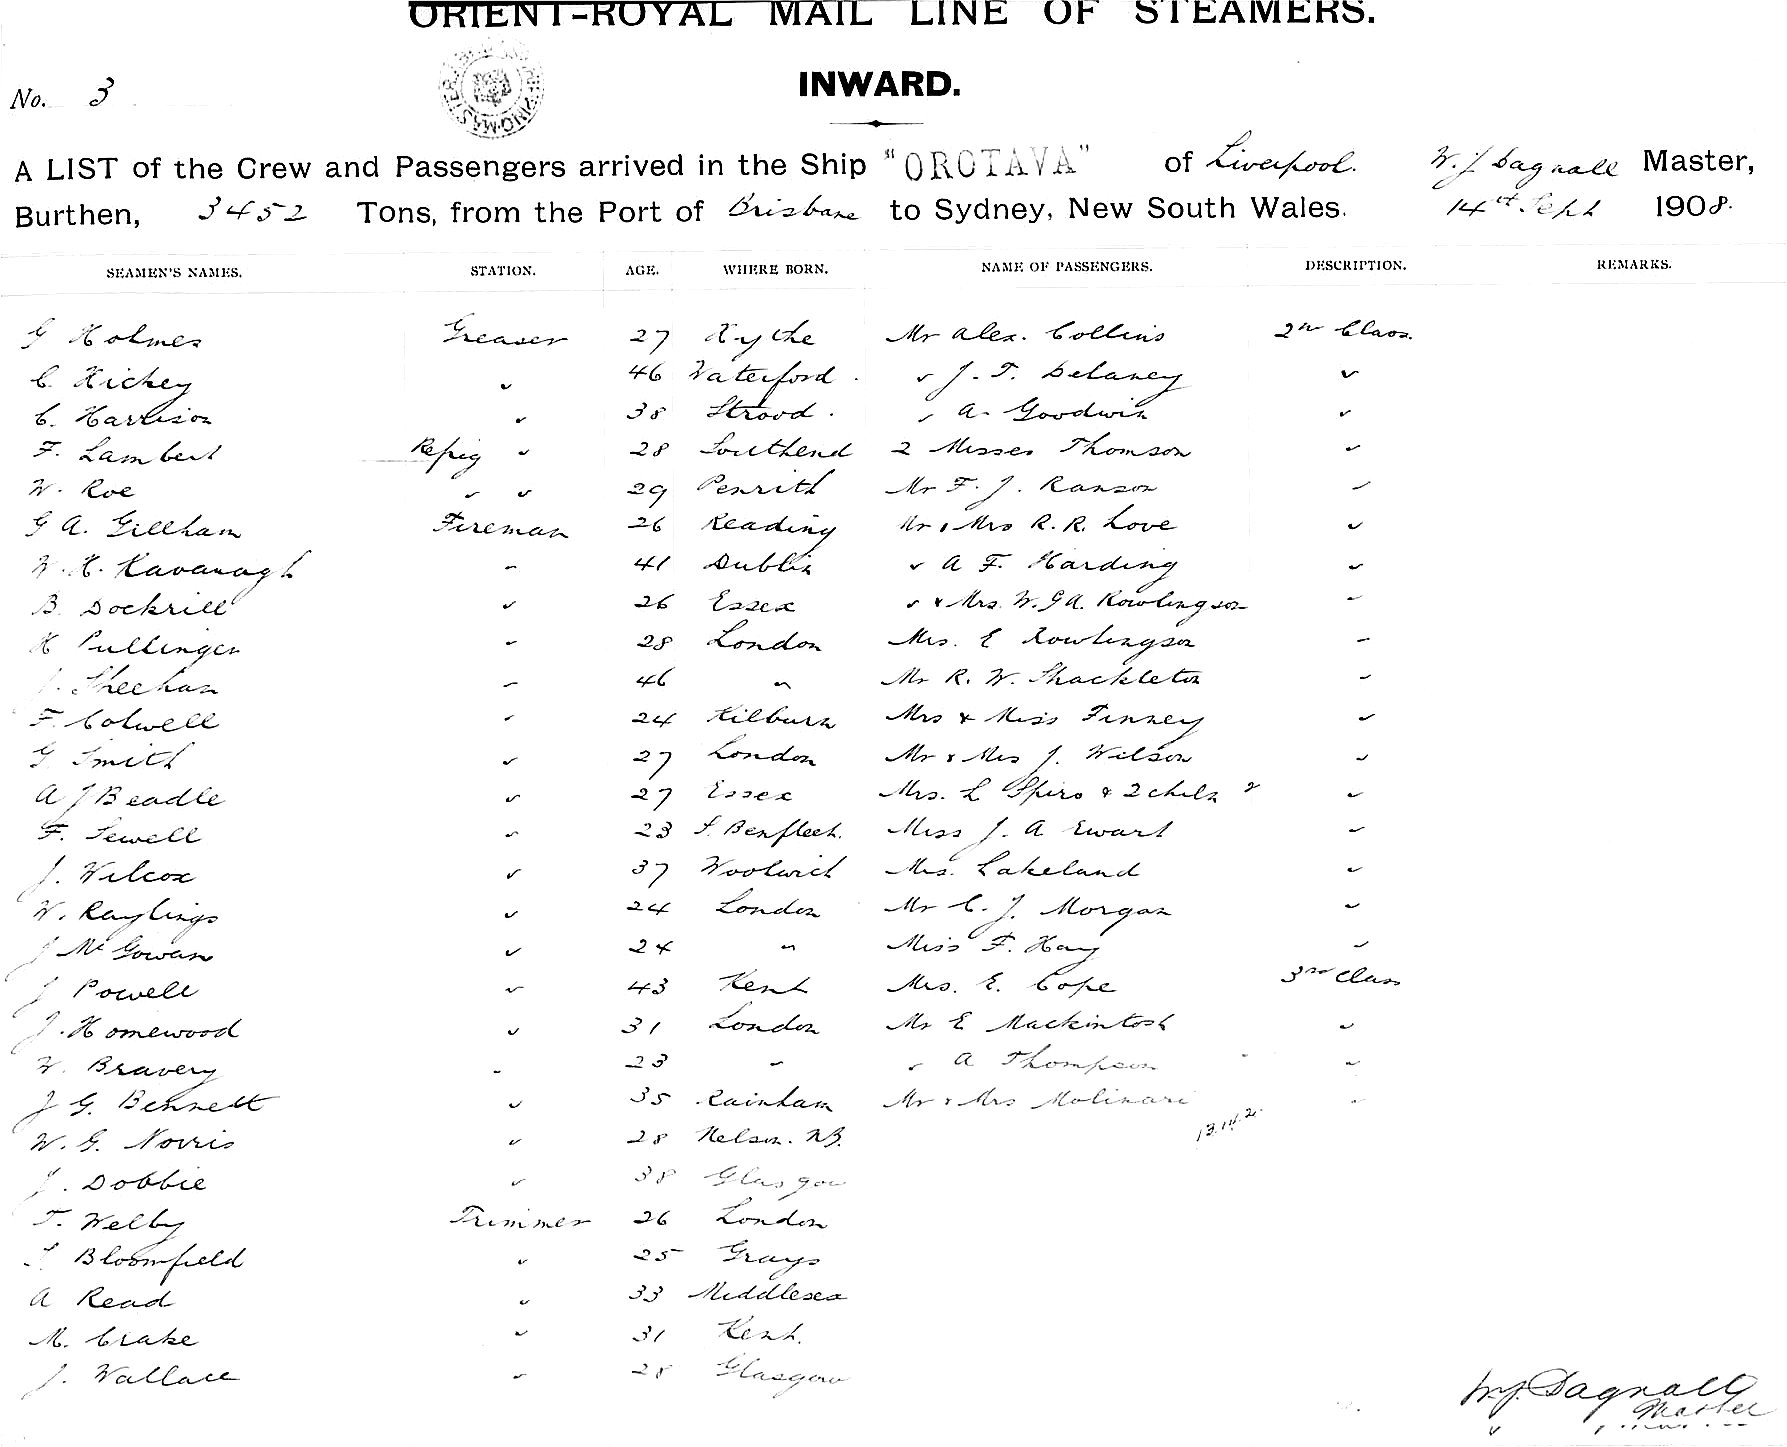 ORIENT-ROYAL MAIL LINE OF STEAMERS.
No. 3
INWARD.
A LIST of the Crew and Passengers arrived in the Ship "OROTAVA" of Liverpool. W. J. Dagnall Master,
Burthen, 3452 Tons, from the Port of Brisbane to Sydney, New South Wales. 14th Sept 1908.
SEAMEN'S NAMES. STATION. AGE. WHERE BORN. NAME OF PASSENGERS. DESCRIPTION. REMARKS.
G Holmes Greaser 27 Hythe Mr Alex. Collins 2nd Class.
C. Hickey 46 Waterford. J. T. Delaney
C. Harrison 38 Strood. A. Goodwin
F. Lambert Refrig 28 Southend 2 Misses Thomson
W. Roe 29 Penrith Mr F. J. Ranson
G A. Gillham Fireman 26 Reading Mr & Mrs R. R. Love
W. H. Kavanagh 41 Dublin A F. Harding
B. Dockrill 26 Essex & Mrs. W. G A. Rowlingson
H Pullinger 28 London Mrs. E Rowlingson
J. Sheehan 46 " Mr R. W. Shackleton
F. Colwell 24 Kilburn Mrs & Miss Finney
G. Smith 27 London Mr & Mrs J. Wilson
A J Beadle 27 Essex Mrs. L Spiro & 2 chiln 2
F. Sewell 23 S. Benfleet. Miss J. A Ewart
J. Wilcox 37 Woolwich Mrs. Lakeland
W. Raylings 24 London Mr C. J. Morgan
J McGowan 24 " Miss F. Hay
J Powell 43 Kent Mrs. E. Cope 3rd Class
J. Homewood 31 London Mr E Mackintosh
W. Bravery 23 " A Thompson
J G. Bennett 35 Rainham Mr & Mrs Molinari
W. G. Norris 28 Nelson. N.Z. 13.14.2.
J. Dobbie 38 Glasgow
T. Welby Trimmer 26 London
S Bloomfield 25 Grays
A Read 33 Middlesex
M. Crake 31 Kent.
J. Wallace 28 Glasgow
W. J. Dagnall
Master